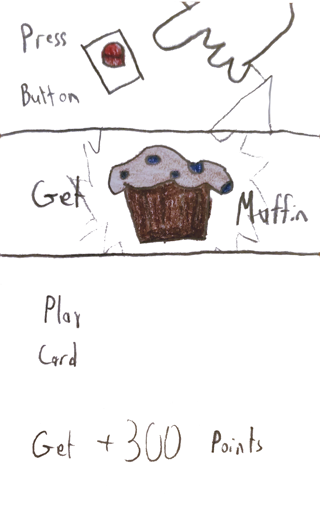 Press
Button
Get Muffin
Play
Card
Get +300 Points